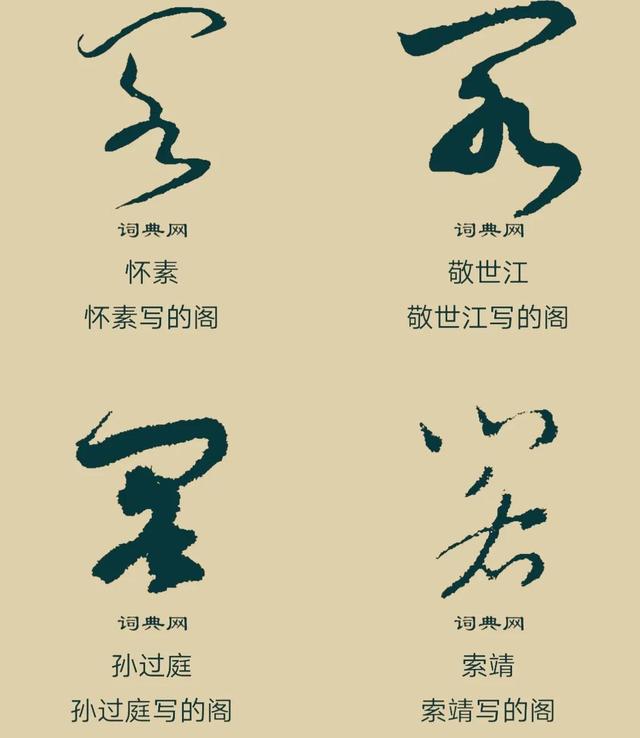 阁 阁
词典网 词典网
怀素 敬世江
怀素写的阁 敬世江写的阁
阁 阁
词典网 词典网
孙过庭 索靖
孙过庭写的阁 索靖写的阁